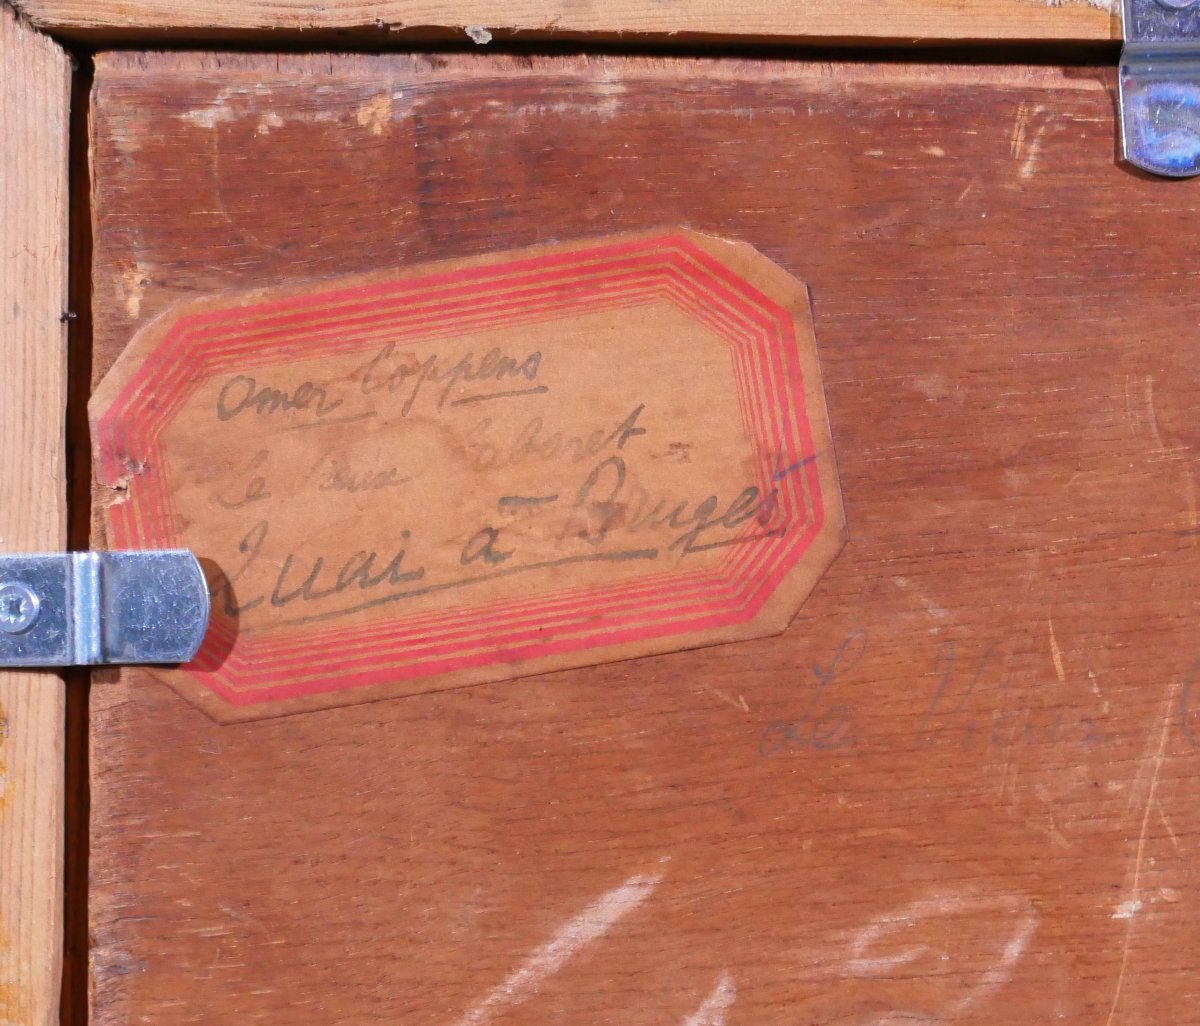 Omer Coppens
Le Vieux Cabaret
Quai à Bruges
Le Vieux C